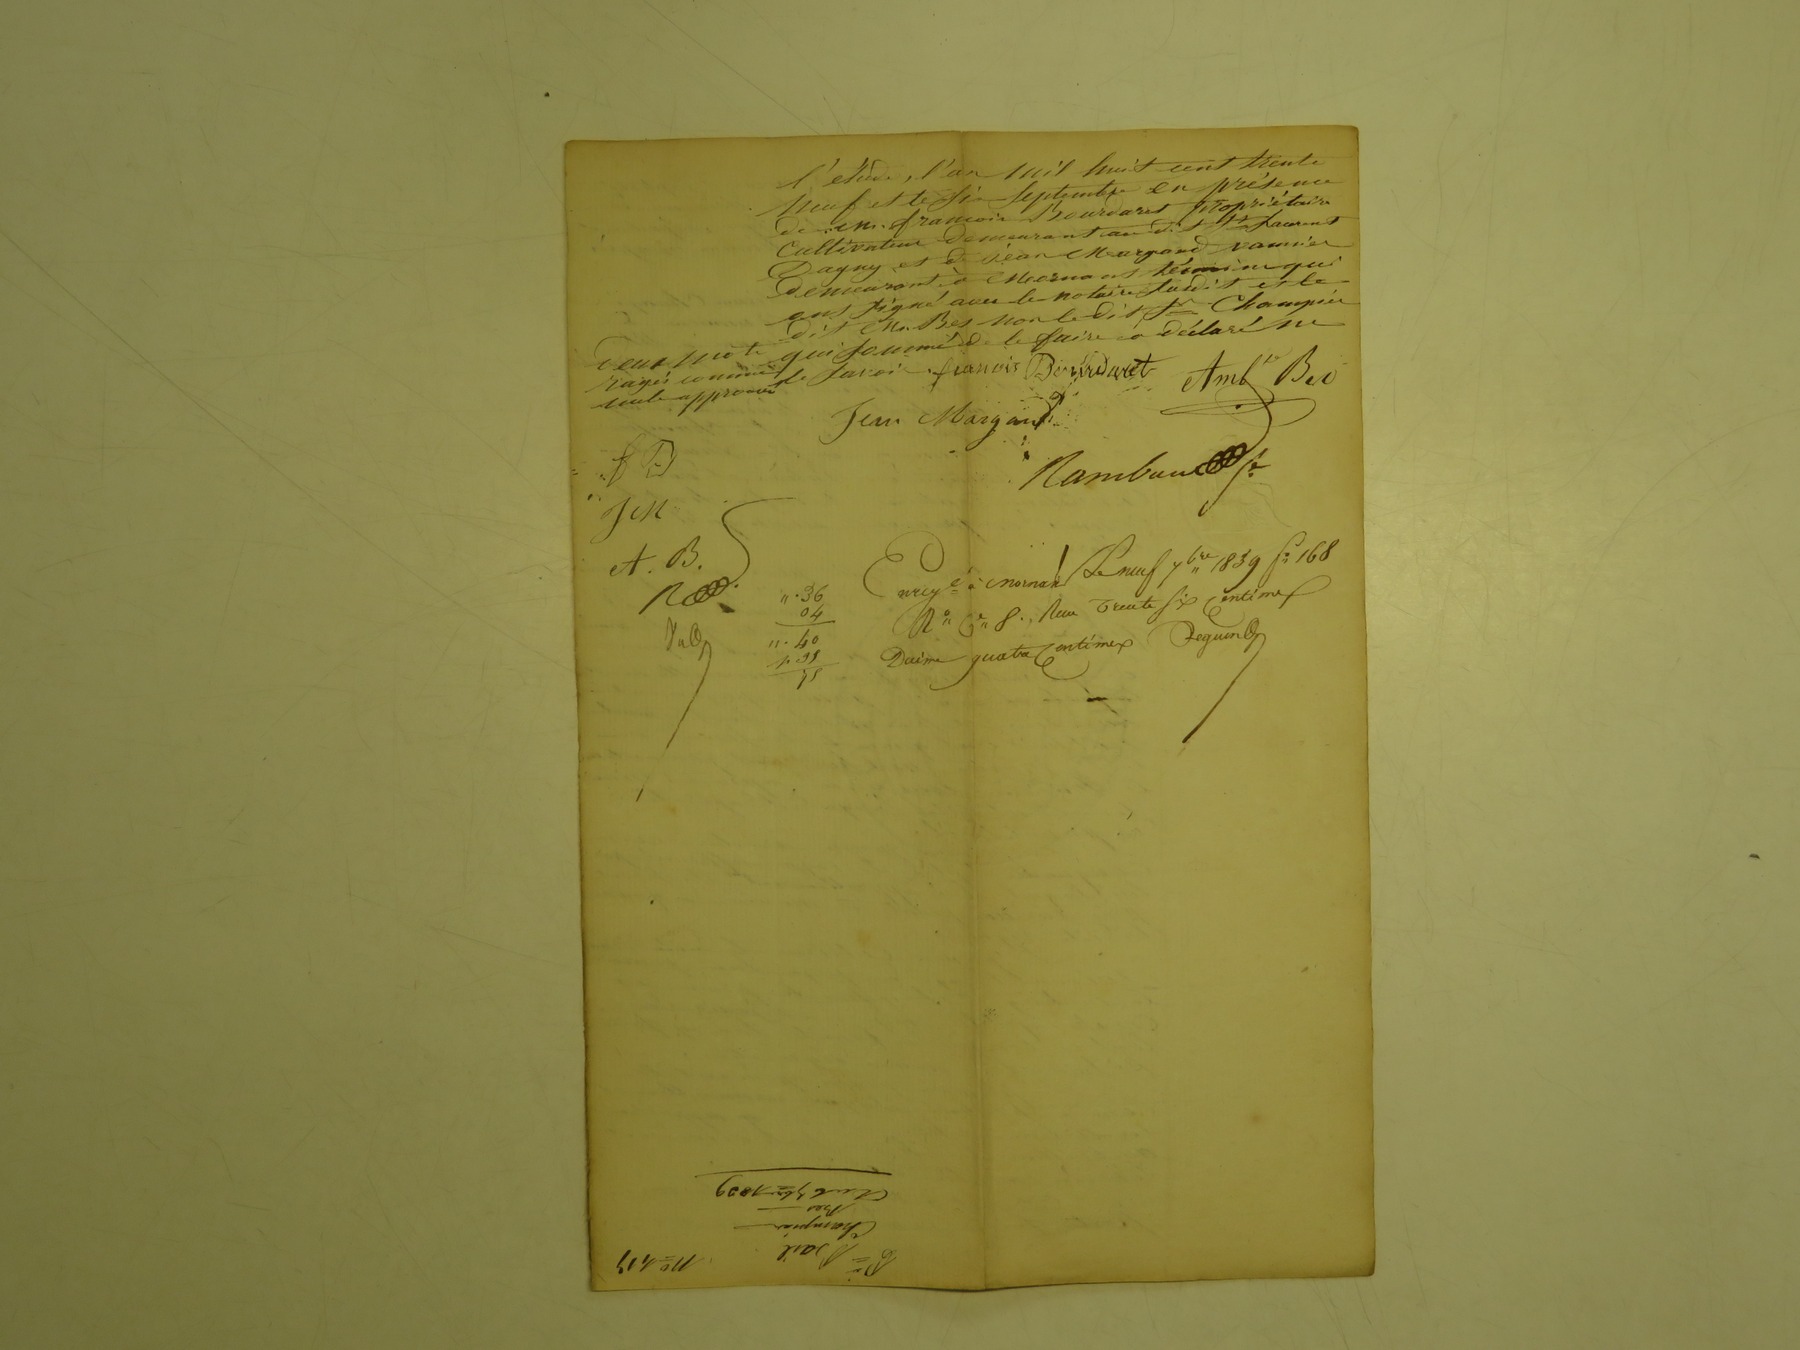 l'étude, l'an mil huit cent trente
neuf et le six Septembre en présence
de m. françois Bourdaret propriétaire
cultivateur demeurant au dit St Laurent
Dagny et de Jean Margand vannier
demeurant à Mornant témoins qui
ont signé avec le notaire susdit et le
dit Mr Bes non le dit Sr Champier
qui sommé de le faire a déclaré ne
le savoir.
Deux mots
rayés comme
nuls approuvés
françois Bourdaret
Amb. Bes
Jean Margand
Rambaud
f B
J M
A. B.
R
Enregé à Mornant Le neuf 7bre 1839 fo 168
Ro Ce 8. Reçu trente six centimes
Dixme quatre centimes
".36
04
".40
1.35
75
No 419
Bail
Champier
Bes
Du 6 7bre 1839